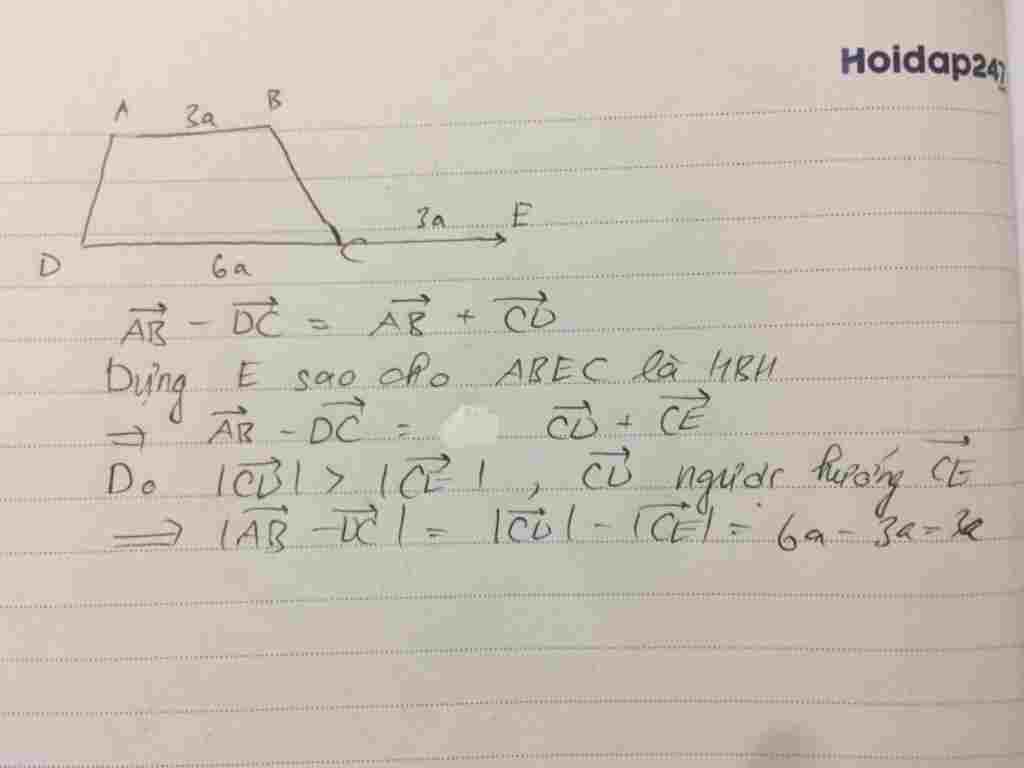 Hoidap247
A 3a B
3a E
D 6a C
AB⃗ - DC⃗ = AB⃗ + CD⃗
Dựng E sao cho ABEC là HBH
⇒ AB⃗ - DC⃗ = CD⃗ + CE⃗
Do |CD⃗| > |CE⃗|, CD⃗ ngược hướng CE⃗
⟹ |AB⃗ - DC⃗| = |CD⃗| - |CE⃗| = 6a - 3a = 3a